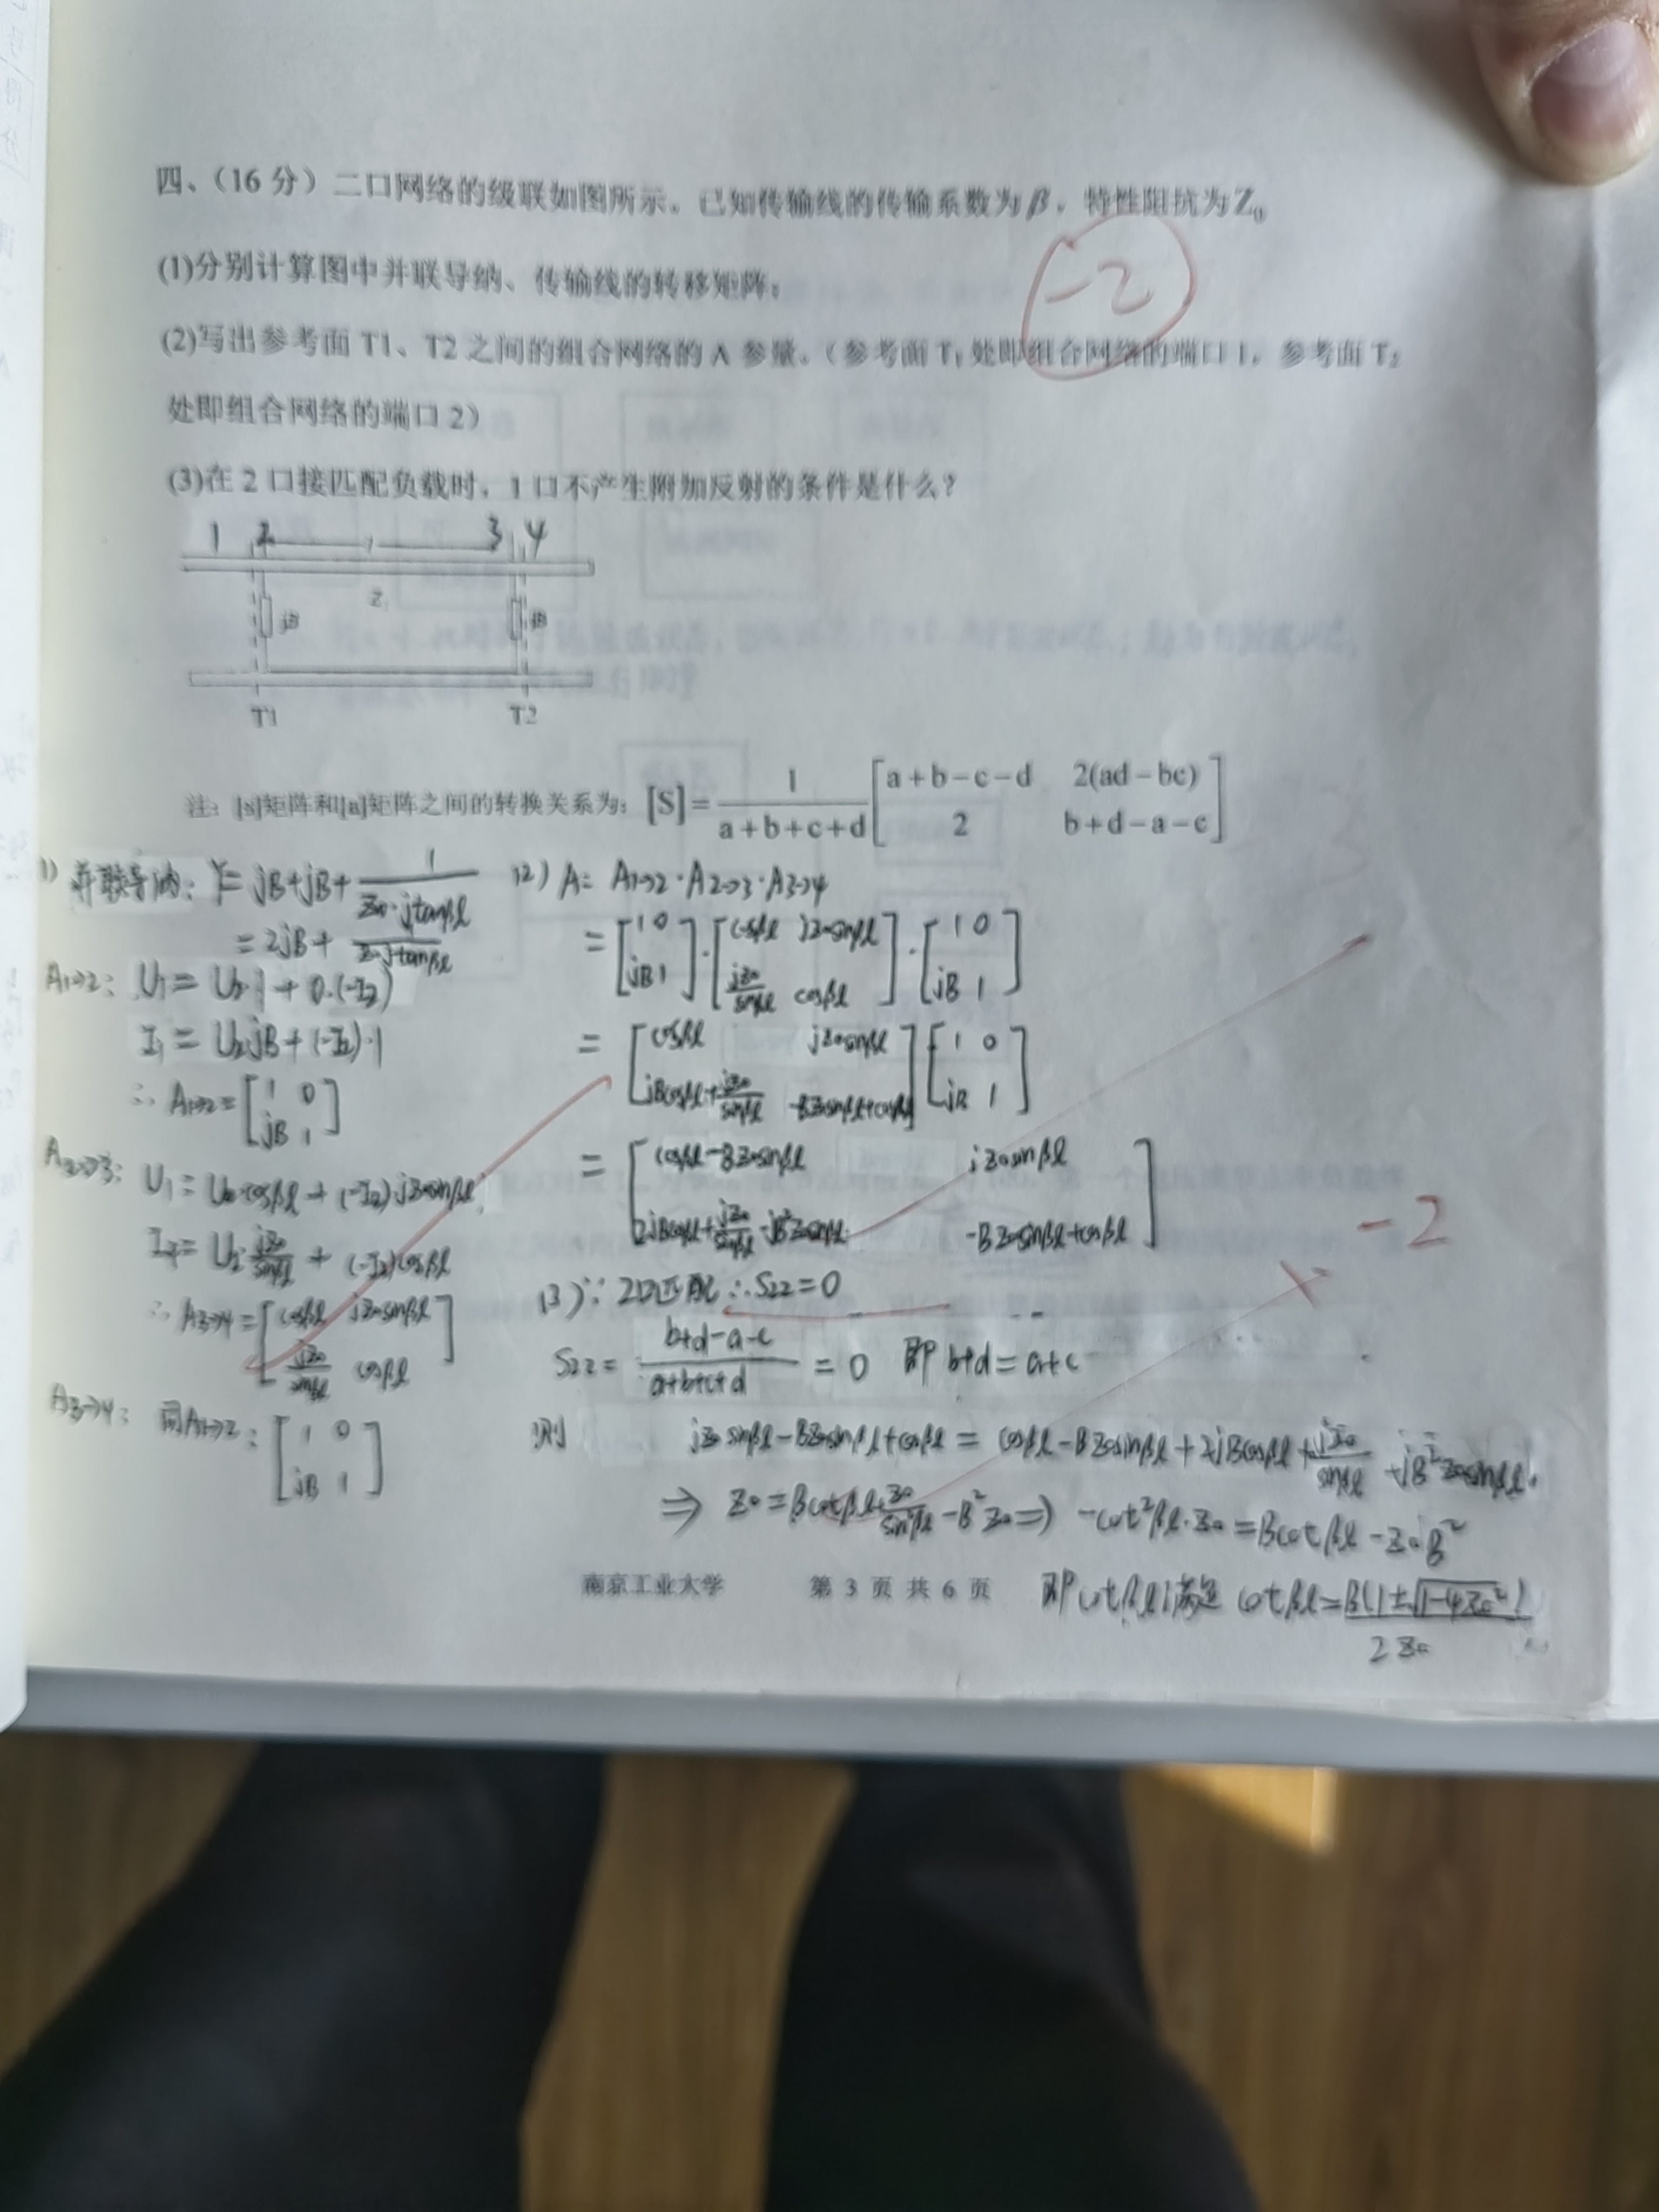 四、（16 分）二口网络的级联如图所示。已知传输线的传输系数为 β，特性阻抗为 Z₀
(1)分别计算图中并联导纳、传输线的转移矩阵；
-2
(2)写出参考面 T1、T2 之间的组合网络的 A 参量。（参考面 T₁ 处即组合网络的端口 1，参考面 T₂
处即组合网络的端口 2）
(3)在 2 口接匹配负载时，1 口不产生附加反射的条件是什么？
1 2 l 3 4
jB jB
T1 T2
注：[s]矩阵和[a]矩阵之间的转换关系为：[S]= 1/(a+b+c+d) [a+b-c-d 2(ad-bc) ; 2 b+d-a-c]
1) 并联导纳：Y= jB+jB+ 1/(Z₀·jtanβl)
= 2jB+
A1→2: U₁= U₂·1+0·(-I₂)
I₁= U₂jB+(-I₂)·1
∴ A1→2= [1 0 ; jB 1]
A2→3: U₁= U₂cosβl+(-I₂)jZ₀sinβl
= U₂ jZ₀/sinβl + (-I₂)cosβl
∴ A3→4= [cosβl jZ₀sinβl ; jZ₀/sinβl cosβl]
A3→4: 同A1→2: [1 0 ; jB 1]
(2) A= A1→2·A2→3·A3→4
= [1 0 ; jB 1]·[cosβl jZ₀sinβl ; jZ₀/sinβl cosβl]·[1 0 ; jB 1]
= [cosβl jZ₀sinβl ; jBcosβl+jZ₀/sinβl -BZ₀sinβl+cosβl][1 0 ; jB 1]
= [cosβl-BZ₀sinβl jZ₀sinβl ; 2jBcosβl+jZ₀/sinβl-jB²Z₀sinβl -BZ₀sinβl+cosβl]
-2
(3)∵ 2口匹配 ∴S₂₂=0
S₂₂= (b+d-a-c)/(a+b+c+d) = 0 即 b+d= a+c
则 jZ₀sinβl-BZ₀sinβl+cosβl = cosβl-BZ₀sinβl+2jBcosβl+jZ₀/sinβl-jB²Z₀sinβl
⇒ Z₀=Bcotβl+Z₀/sin²βl-B²Z₀⇒ -cot²βl·Z₀=Bcotβl-Z₀B²
即cotβl满足 cotβl= B(1±√(1-4Z₀²))/2Z₀
南京工业大学 第 3 页 共 6 页